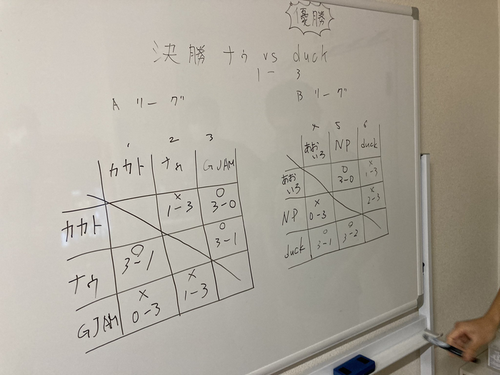 優勝
決勝 ナゥ vs duck
1 - 3
A リーグ
B リーグ
1 2 3
カカト ナゥ GJAM
カカト × 1-3 ○ 3-0
ナゥ ○ 3-1 ○ 3-1
GJAM × 0-3 × 1-3
× 5 6
あおいろ NP duck
あおいろ ○ 3-0 × 1-3
NP × 0-3 × 2-3
duck ○ 3-1 ○ 3-2